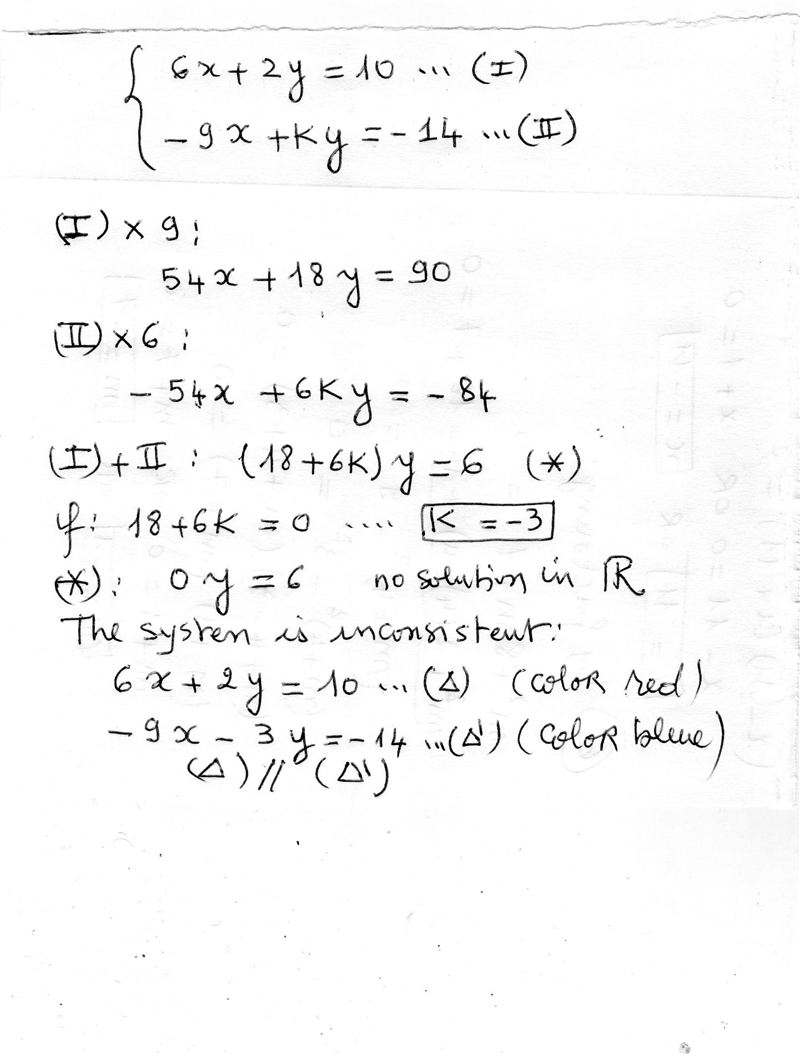 6x + 2y = 10 ... (I)
-9x + Ky = -14 ... (II)
(I) × 9 :
54x + 18y = 90
(II) × 6 :
- 54x + 6Ky = - 84
(I) + II : (18 + 6K) y = 6 (*)
If : 18 + 6K = 0 .... K = -3
(*) : 0y = 6 no solution in ℝ
The system is inconsistent :
6x + 2y = 10 ... (Δ) (color red)
- 9x - 3y = -14 ... (Δ') (color blue)
(Δ) // (Δ')